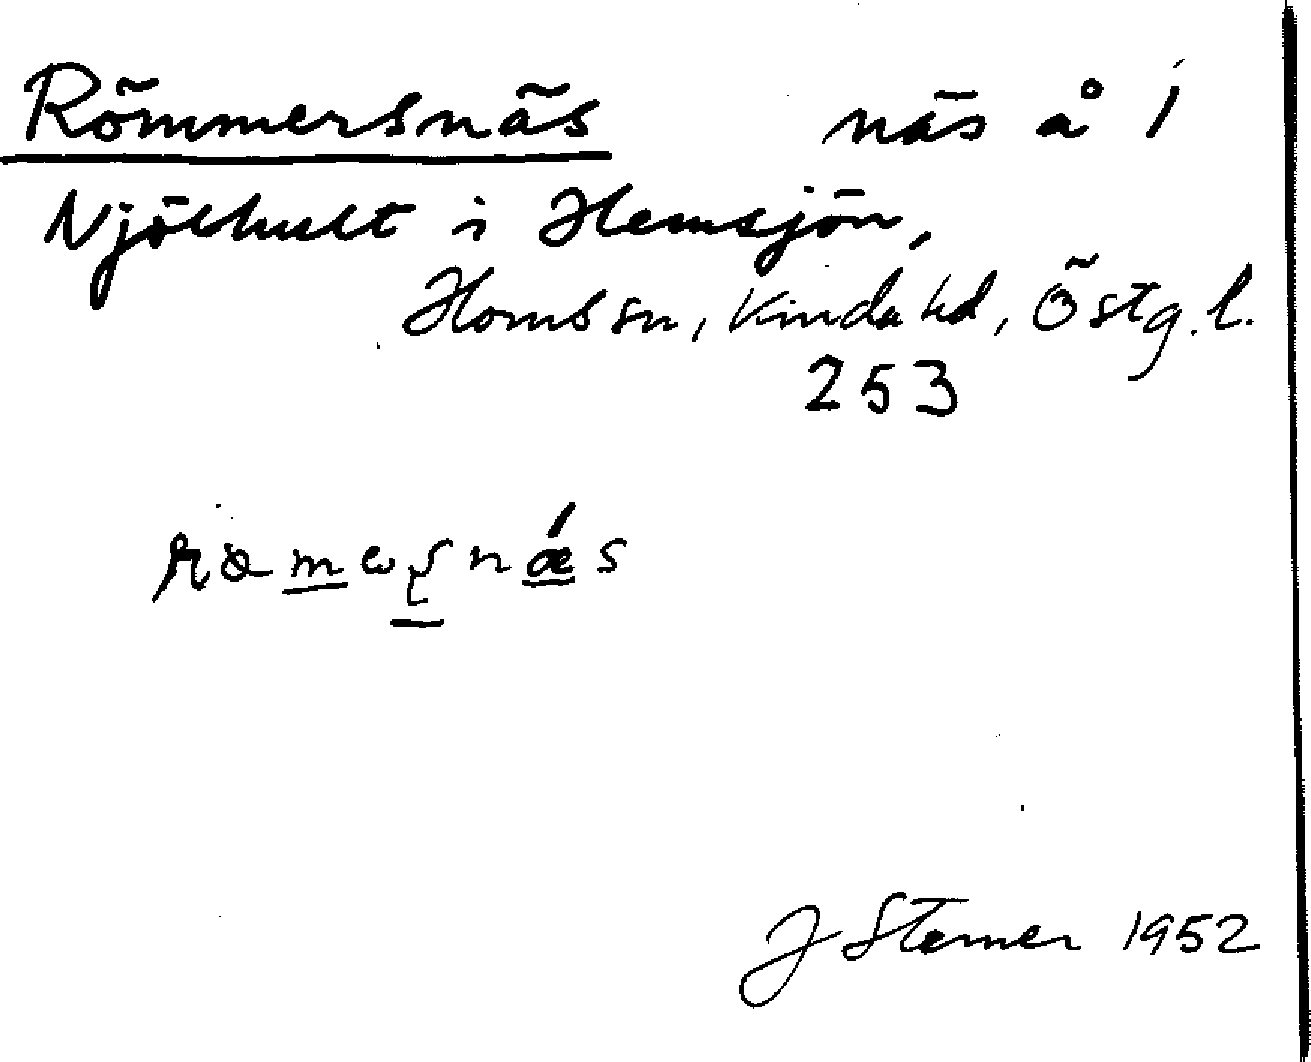 Römmersnäs näs å 1
Njölhult i Hemsjön,
Horns sn, Kinda hd, Östg.l.
253
J Sterner 1952